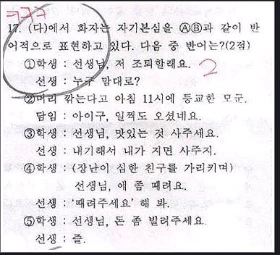 ㅋㅋㅋ
17. (다)에서 화자는 자기본심을 ⒶⒷ과 같이 반
어적으로 표현하고 있다. 다음 중 반어는?(2점)
①학생 : 선생님, 저 조퇴할래요. 2
선생 : 누구 맘대로?
②머리 깎는다고 아침 11시에 등교한 모군.
담임 : 아이구, 일찍도 오셨네요.
③학생 : 선생님, 맛있는 것 사주세요.
선생 : 내기해서 내가 지면 사주지.
④학생 : (장난이 심한 친구를 가리키며)
선생님, 애 좀 때려요.
선생 : '때려주세요' 해 봐.
⑤학생 : 선생님, 돈 좀 빌려주세요
선생 : 즐.